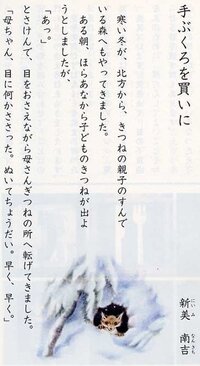 手ぶくろを買いに
新美　南吉
にいみ　なんきち
寒い冬が、北方から、きつねの親子のすんで
いる森へもやってきました。
ある朝、ほらあなから子どものきつねが出よ
うとしましたが、
「あっ。」
とさけんで、目をおさえながら母さんぎつねの所へ転げてきました。
「母ちゃん、目に何かささった。ぬいてちょうだい。早く、早く。」